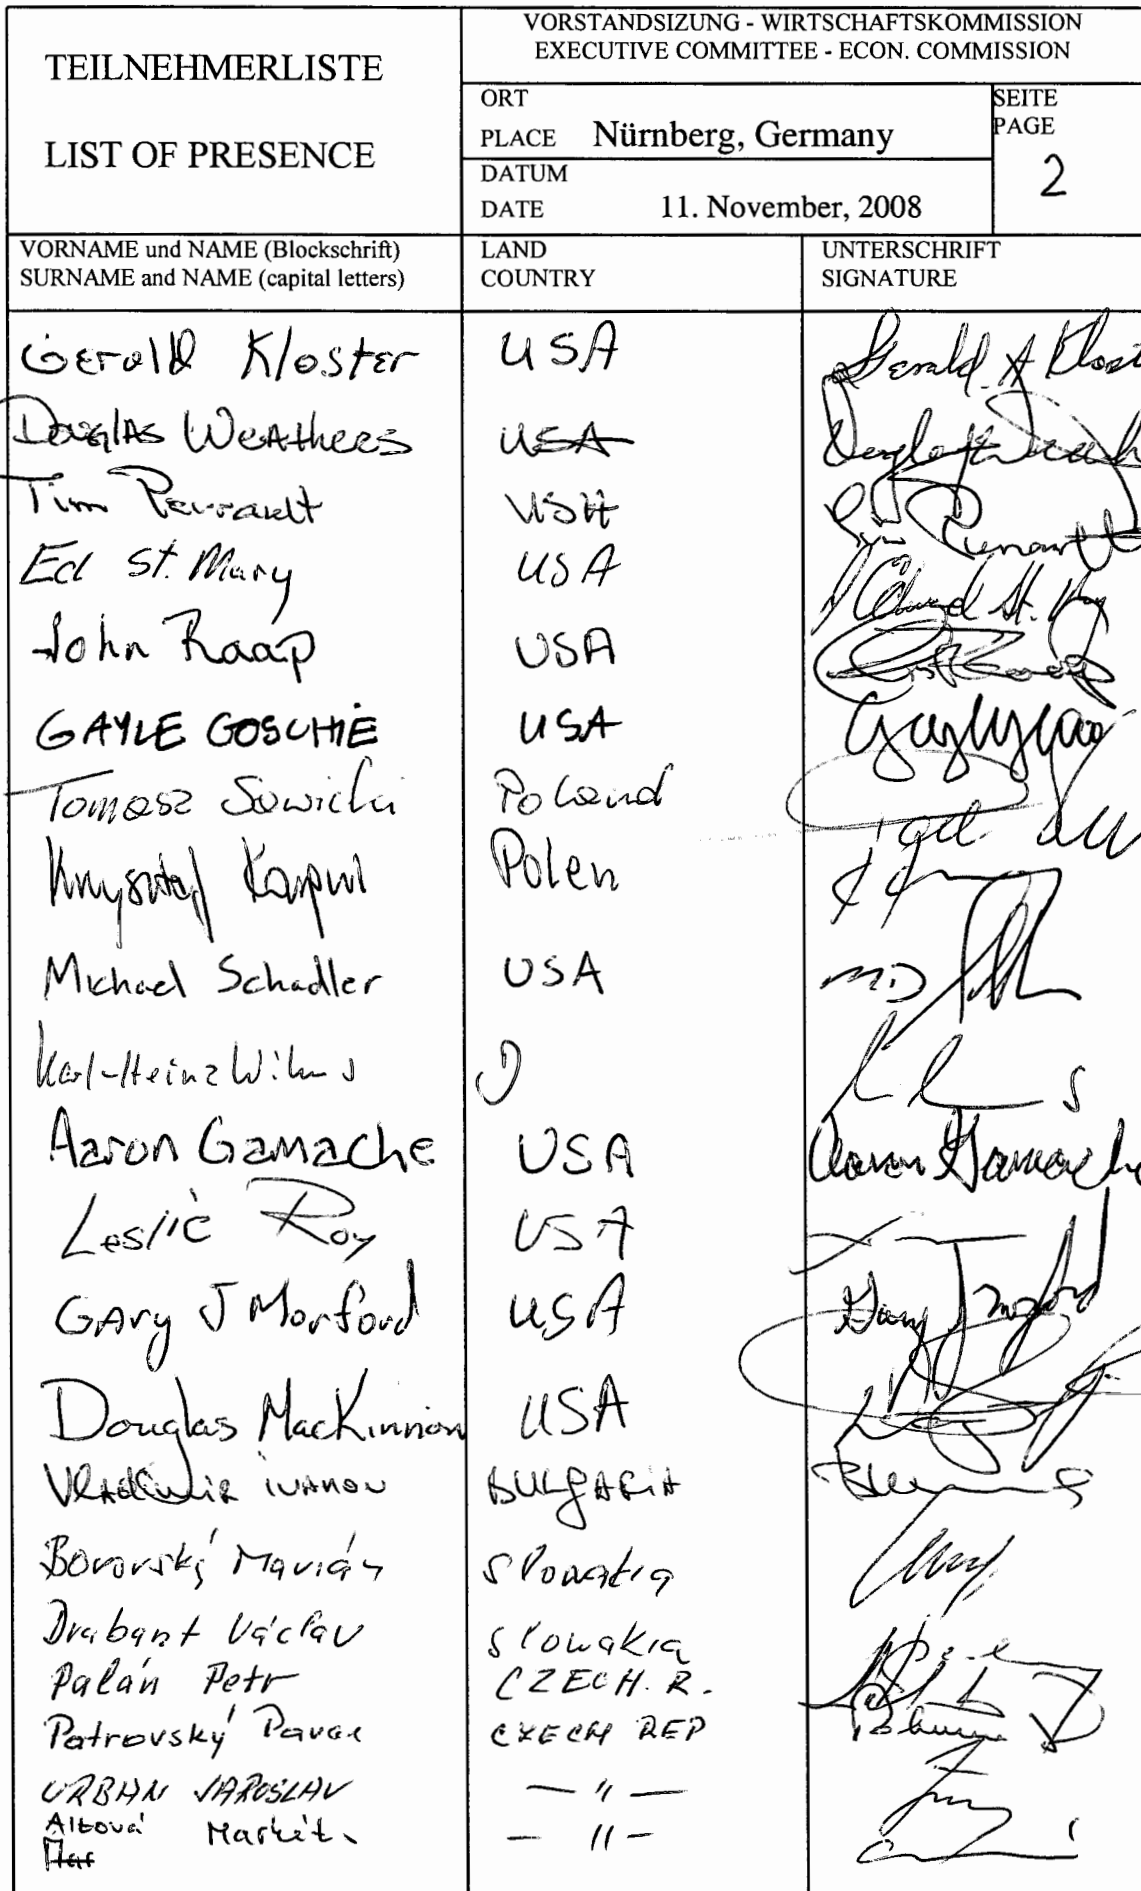 TEILNEHMERLISTE
LIST OF PRESENCE
VORSTANDSIZUNG - WIRTSCHAFTSKOMMISSION
EXECUTIVE COMMITTEE - ECON. COMMISSION
ORT
PLACE Nürnberg, Germany
DATUM
DATE 11. November, 2008
SEITE
PAGE
2
VORNAME und NAME (Blockschrift)
SURNAME and NAME (capital letters)
LAND
COUNTRY
UNTERSCHRIFT
SIGNATURE
Gerald Kloster USA Gerald A Klost
Douglas Weathers USA
Tim Perrault USA
Ed St. Mary USA Edward St.
John Raap USA
GAYLE GOSCHIE USA
Tomasz Sowicki Poland
Krzysztof Karpin Polen
Michael Schadler USA
Karl-Heinz D
Aaron Gamache USA Aaron Gamache
Leslie Roy USA
GAry J Morford USA Gary J Morford
Douglas MacKinnon USA
VLADIMIR IVANOV BULGARIA
Borovský Marián Slovakia
Drabant Václav Slowakia
Palán Petr CZECH. R.
Patrovský Pavel CZECH REP
URBAN JAROSLAV — " —
Altová Markét. — " —
Mar